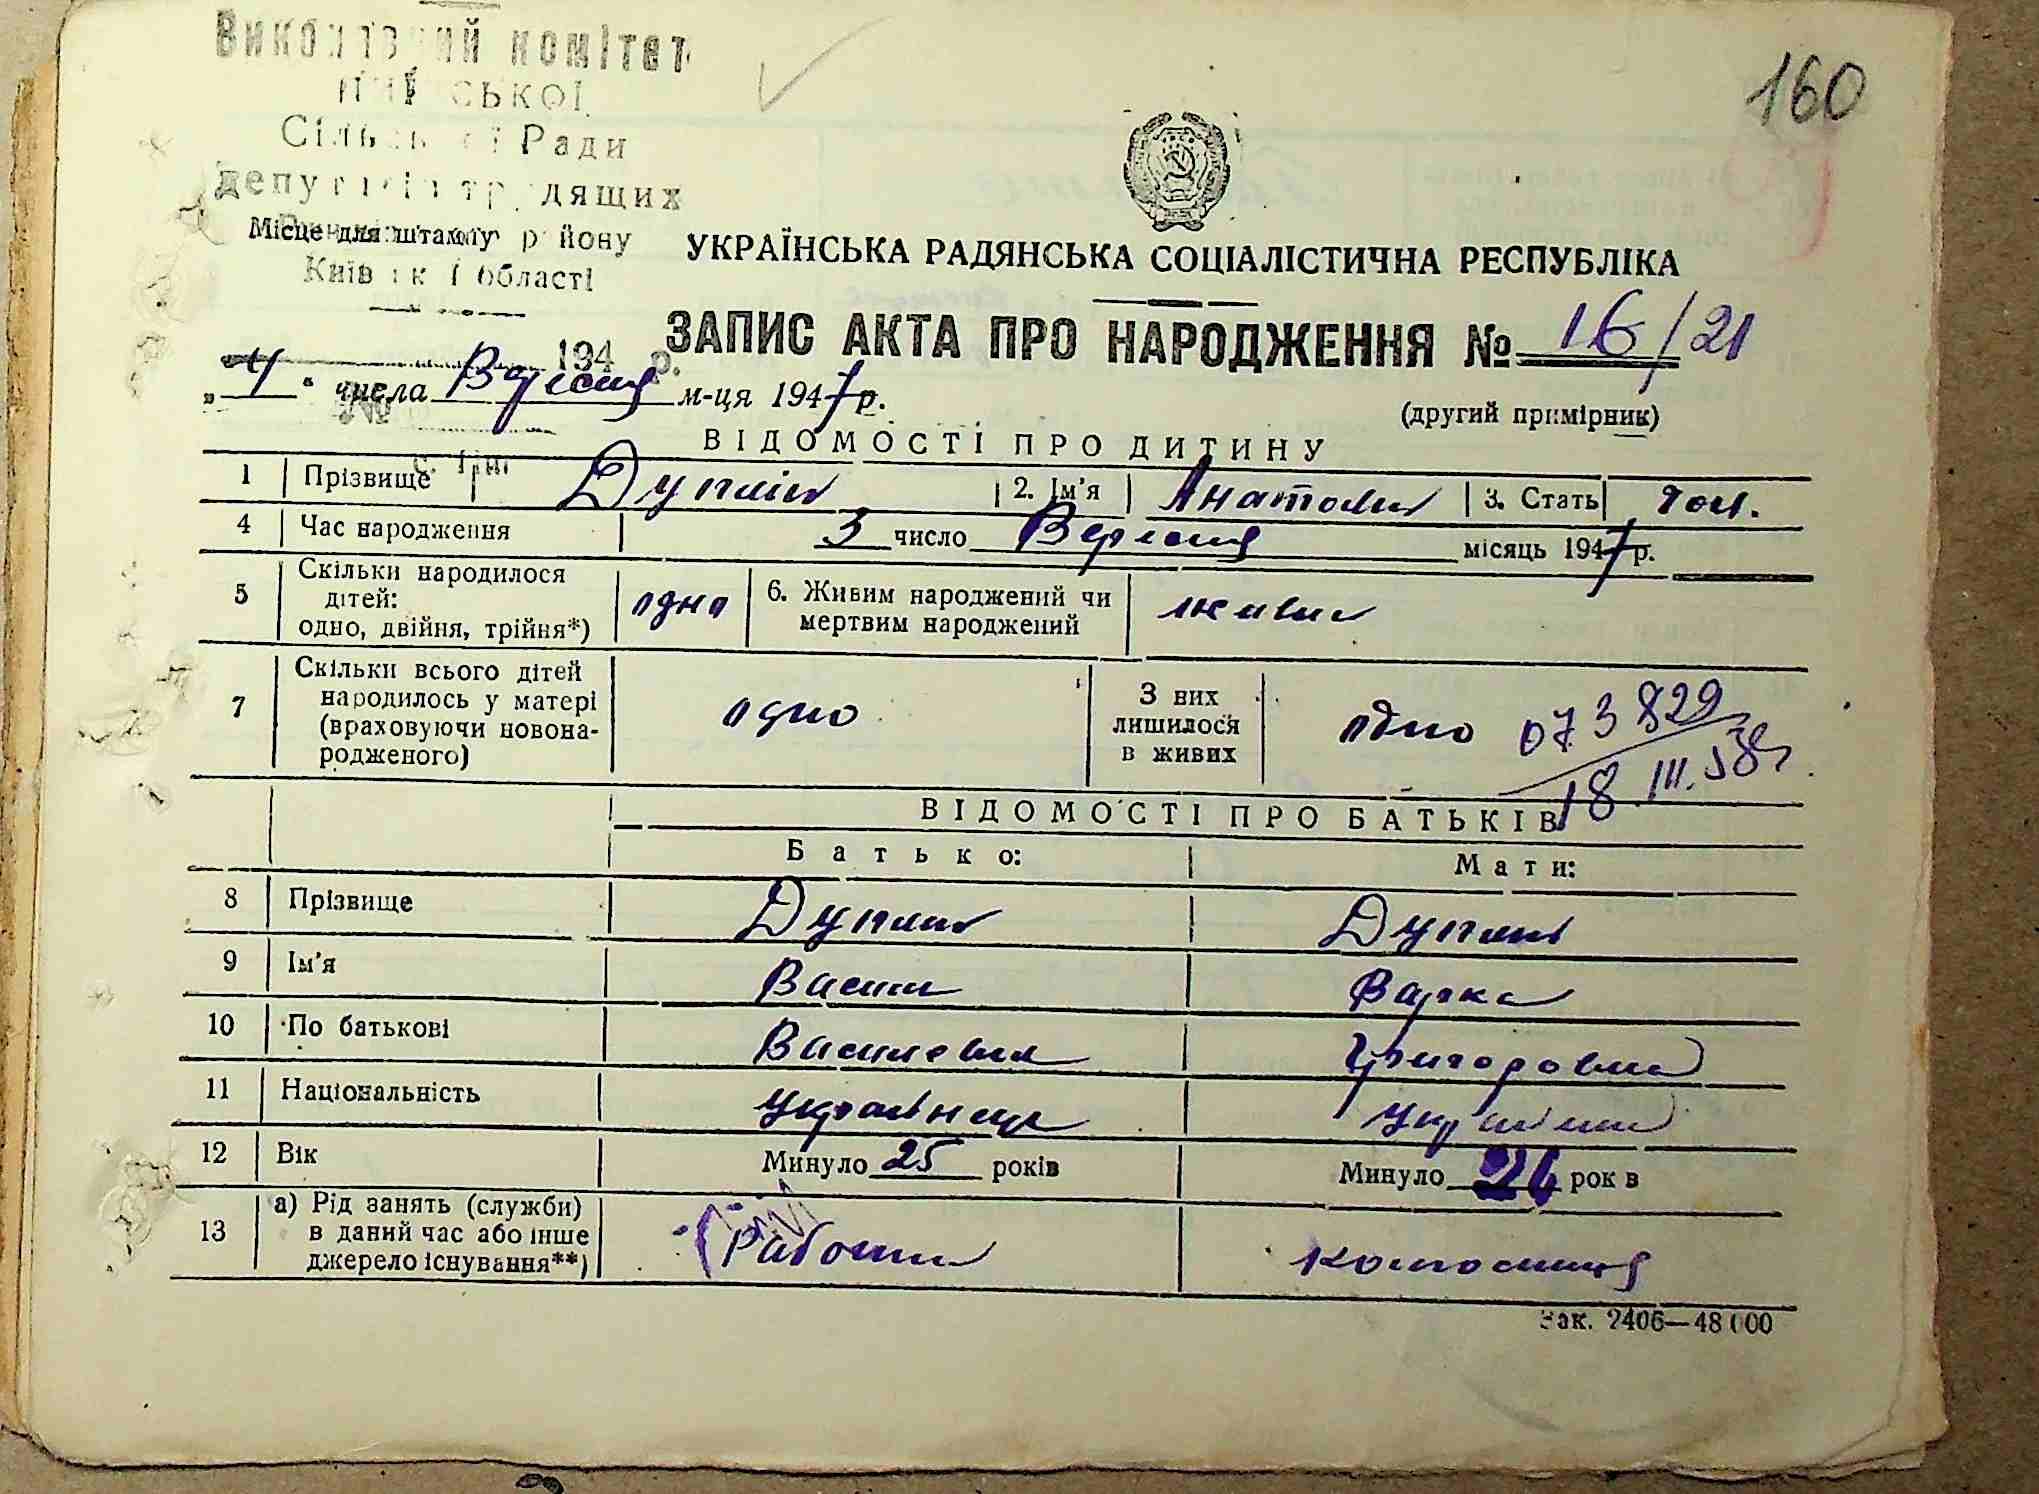 160
Виконавчий комітет
ської
Сільської Ради
депутатів трудящих
Місце для штампу району
Київської області
УКРАЇНСЬКА РАДЯНСЬКА СОЦІАЛІСТИЧНА РЕСПУБЛІКА
ЗАПИС АКТА ПРО НАРОДЖЕННЯ № 16/21
194 р.
„4“ числа Вересня м-ця 1947 р.
№
(другий примірник)
ВІДОМОСТІ ПРО ДИТИНУ
1 Прізвище 2. Ім'я Анатолий 3. Стать чол.
4 Час народження 3 число Вересня місяць 1947 р.
5 Скільки народилося дітей: одно, двійня, трійня*) одно 6. Живим народжений чи мертвим народжений живим
7 Скільки всього дітей народилось у матері (враховуючи новонародженого) одно З них лишилося в живих одно 073829
18 III.58р.
ВІДОМОСТІ ПРО БАТЬКІВ
Батько: Мати:
8 Прізвище
9 Ім'я Васил Варка
10 По батькові Василевич Григоровна
11 Національність українець українка
12 Вік Минуло 25 років Минуло рок в
13 а) Рід занять (служби) в даний час або інше джерело існування**) Рабочий колгоспниця
Зак. 2406—48000